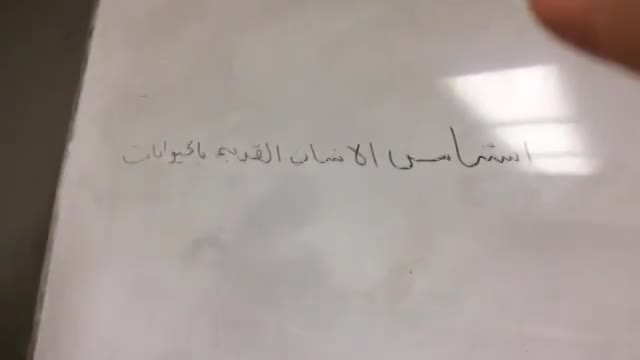 استئناس الانسان القديم بالحيوانات